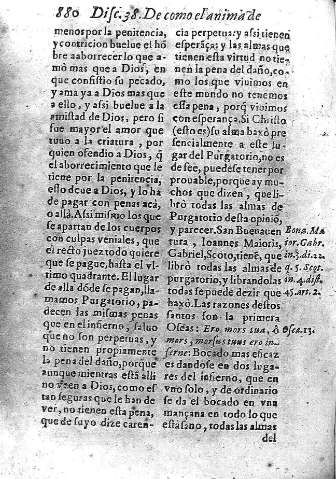 880 Disc. 38. De como el anima de
menos por la penitencia,
y contricion buelue el hõ
bre a aborrecer lo que a-
mò mas que a Dios, en
que consistio su pecado,
y ama ya a Dios mas que
a ello, y assi buelue a la
amistad de Dios. pero si
fue mayor el amor que
tuuo a la criatura, por
quien ofendio a Dios, q̃
el aborrecimiento que le
tiene por la penitencia,
esso deue a Dios, y lo ha
de pagar con penas acà,
o allà. Assi mismo los que
se apartan de los cuerpos
con culpas veniales, que
el recto juez todo quiere
que se pague, hasta el vl-
timo quadrante. El lugar
de alla dõde se pagan, lla-
mamos Purgatorio, pa-
decen las mismas penas
que en el infierno, saluo
que no son perpetuas, y
no tienen propiamente
la pena del daño, porque
aunque mientras està alli
no veen a Dios, como es-
tan seguras que le han de
ver, no tienen esta pena,
que de suyo dize caren-
cia perpetua: y assi tienen
esperãça; y las almas que
tienen esta virtud no tie-
nen la pena del daño, co-
mo los que viuimos en
este mundo no tenemos
essa pena, porq̃ viuimos
con esperança. Si Christo
(esto es) su alma baxò pre
sencialmente a este lu-
gar del Purgatorio, no es
de fee, puedese tener por
prouable, porque ay mu-
chos que dizen, que li-
brò todas las almas de
Purgatorio desta opiniõ,
y parecer. San Buenauen
tura, Ioannes Maioris,
Gabriel, Scoto, tienē, que
librò todas las almas de
purgatorio, y librandolas
todas se puede dezir que
baxò. Las razones destos
santos son la primera
Oseas: Ero mors tua, ô
mors, morsus tuus ero in-
ferne: Bocado mas eficaz
es dandose en dos luga-
res del infierno, que en
vno solo, y de ordinario
se da el bocado en vna
mançana en todo lo que
està sano, todas las almas
del
Bona. Ma
ior. Gabr.
in. 3. di. 22.
q. 5. Scot.
in. 4. dist.
45. art. 2.
Osea. 13.